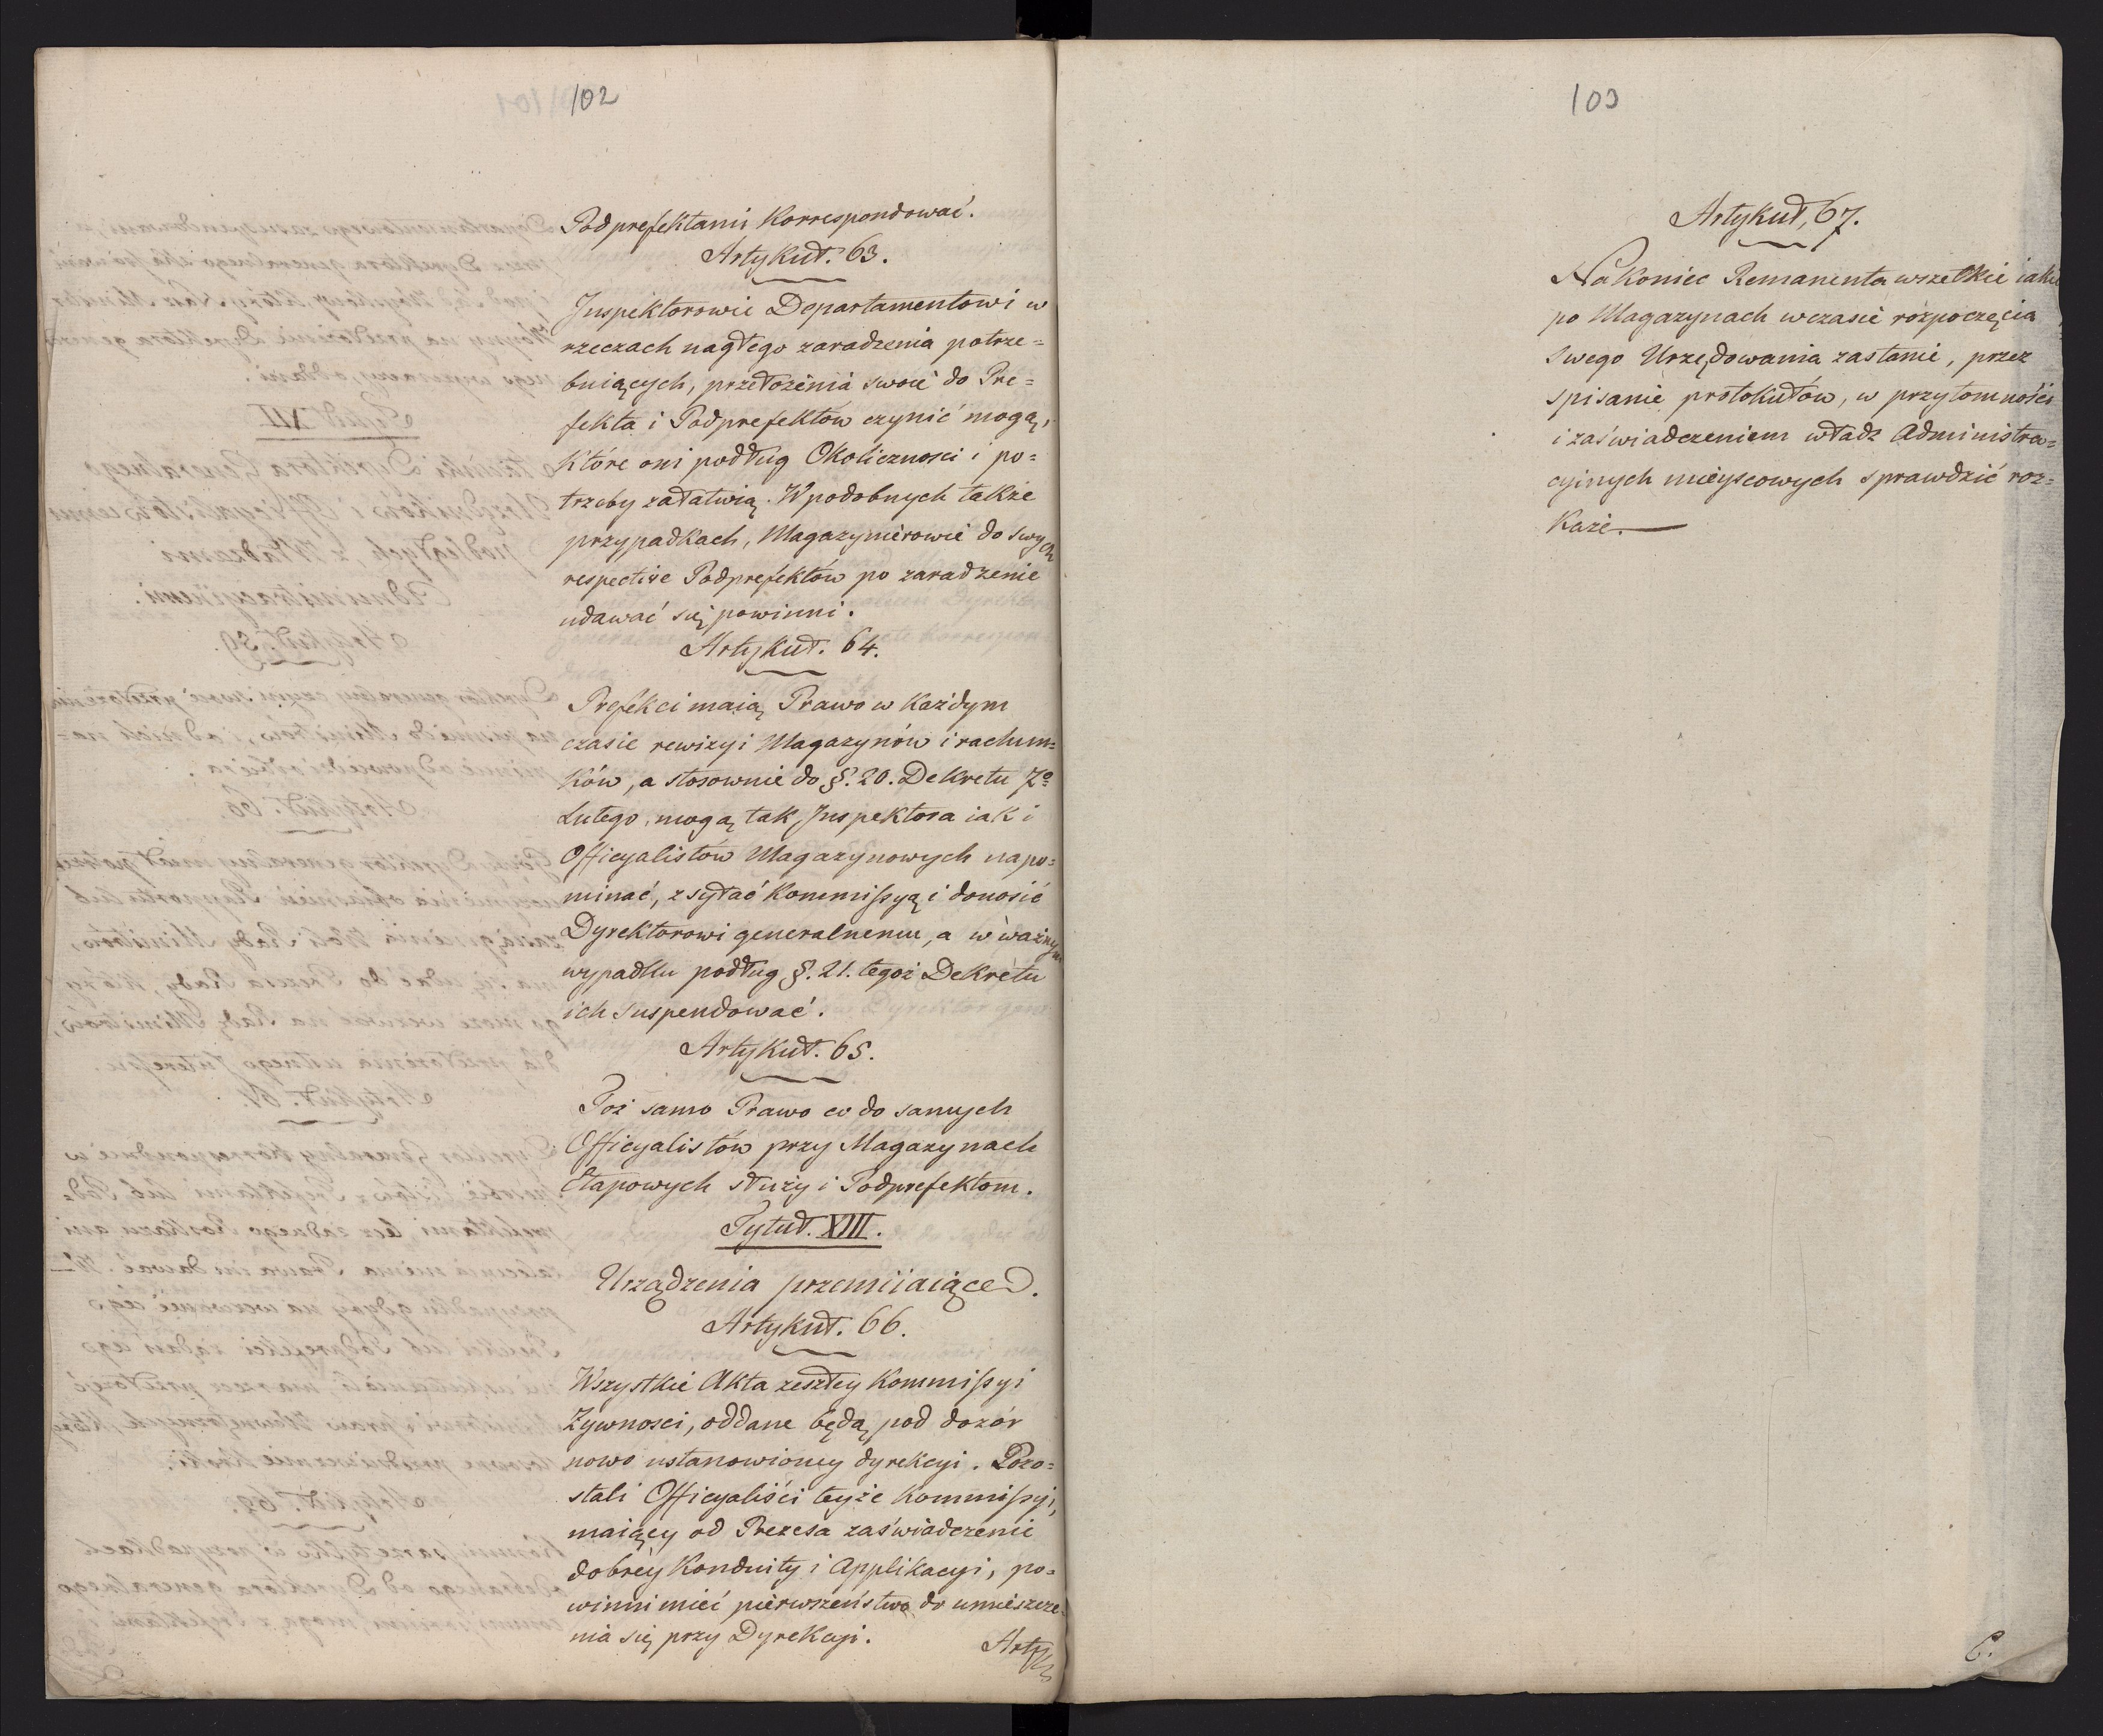 102
Podprefektami Korrespondować.
Artykuł. 63.
Inspektorowie Departamentowi w
rzeczach nagłego zaradzenia potrze=
buiących, przełożenia swoie do Pre=
fekta i Podprefektów czynić mogą,
które oni podług Okoliczności i po=
trzeby załatwią. W podobnych także
przypadkach, Magazynierowie do swych
respective Podprefektów po zaradzenie
udawać się powinni.
Artykuł. 64.
Prefekci maią Prawo w każdym
czasie rewizyi Magazynów i rachun=
ków, a stosownie do §. 20. Dekretu 7º
Lutego, mogą tak Inspektora iak i
Officyalistów Magazynowych napo=
minać, zsyłać Kommissyą i donosić
Dyrektorowi generalnemu, a w ważnym
wypadku podług §. 21. tegoż Dekretu
ich suspendować.
Artykuł. 65.
Toż samo Prawo co do samych
Officyalistów przy Magazynach
Etapowych służy i Podprefektom.
Tytuł. XIII.
Urządzenia przemiiaiące.
Artykuł. 66.
Wszystkie Akta zeszłey Kommissyi
Żywności, oddane będą pod dozór
nowo ustanowioney dyrekcyi. Pozo=
stali Officyaliści teyże Kommissyi,
maiący od Prezesa zaświadczenie
dobréy Konduity i Applikacyi, po=
winni mieć pierwszeństwo do umieszcze=
nia się przy Dyrekcyi.
Artyk
103
Artykuł, 67.
Nakoniec Remanenta wszelkie iakie
po Magazynach wczasie rozpoczęcia
Swego Urzędowania zastanie, przez
spisanie protokułów, w przytomności
i zaświadczeniem władz Administra=
cyinych mieyscowych sprawdzić roz=
każe.